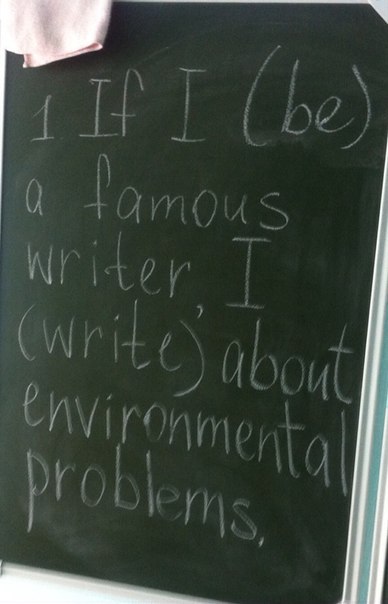 1 If I (be)
a famous
writer, I
(write) about
environmental
problems.